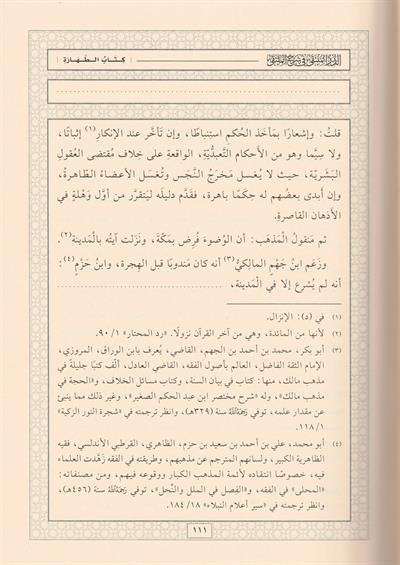 الدر المنتقى في شرح الملتقى
كتاب الطهارة
قلتُ: وإشعارًا بمأخَذ الحُكمِ استِنباطًا، وإن تَأخَّر عند الإنكارِ(١) إثباتًا،
ولا سِيَّما وهو من الأحكام التَّعبديَّةِ، الواقعةِ على خِلاف مُقتضى العُقولِ
البَشَريَّة، حيث لا يُغسل مَخرَجُ النَّجَس وتُغسَل الأعضاءُ الظاهرةُ،
وإن أبدى بعضُهم له حِكمًا باهرة، فقدَّم دليلَه ليَتقرَّر من أوَّل وَهْلةٍ في
الأذهان القاصرةِ.
ثم مَنقولُ المَذهَب: أن الوُضوءَ فُرِض بمَكَّةَ، ونَزلَت آيتُه بالْمَدينة(٢).
وزَعَم ابنُ جَهْمٍ المالكيُّ(٣) أنه كان مَندوبًا قبل الهِجرة، وابنُ حَزْمٍ(٤):
أنه لم يُشرع إلا في الْمَدينة،
(١) في (د): الإنزال.
(٢) لأنها من المائدة، وهي من آخر القرآن نزولًا. «رد المحتار» ١/ ٩٠.
(٣) أبو بكر، محمد بن أحمد بن الجهم، القاضي، يُعرف بابن الوراق، المروزي،
الإمام الثقة الفاضل، العالم بأصول الفقه، القاضي العادل، ألّف كتبًا جليلةً في
مذهب مالك، منها: كتاب في بيان السنة، وكتاب مسائل الخلاف، و«الحجة في
مذهب مالك»، وله «شرح مختصر ابن عبد الحكم الصغير»، وغير ذلك مما ينبئ
عن مقدار علمه، توفي رَحِمَهُ اللَّهُ سنة (٣٢٩هـ)، وانظر ترجمته في «شجرة النور الزكية»
١/ ١١٨.
(٤) أبو محمد، علي بن أحمد بن سعيد بن حزم، الظاهري، القرطبي الأندلسي، فقيه
الظاهرية الكبير، ولسانهم المترجم عن مذهبهم، وطريقته في الفقه زهّدت العلماء
فيه، خصوصًا انتقاده لأئمة المذهب الكبار ووقوعه فيهم، ومن مصنفاته:
«المحلى» في الفقه، و«الفِصل في الملل والنِّحل»، توفي رَحِمَهُ اللَّهُ سنة (٤٥٦هـ)،
وانظر ترجمته في «سير أعلام النبلاء» ١٨/ ١٨٤.
١١١